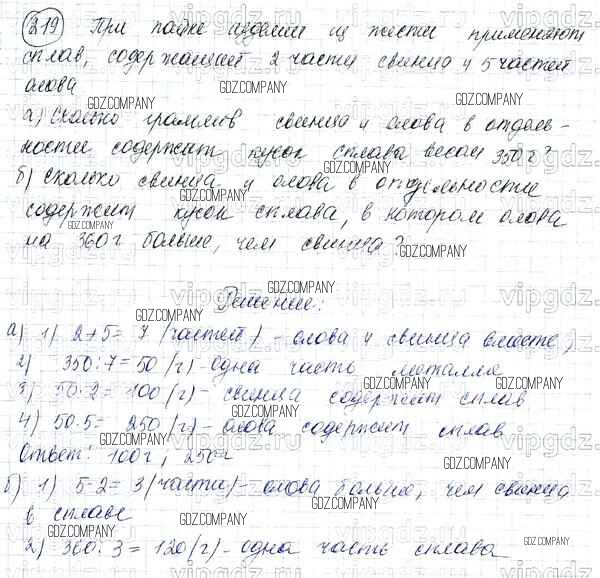 219) При пайке изделий из жести применяют
сплав, содержащий 2 части свинца и 5 частей
олова
а) Сколько граммов свинца и олова в отдель-
ности содержит кусок сплава весом 350 г?
б) Сколько свинца и олова в отдельности
содержит кусок сплава, в котором олова
на 360 г больше, чем свинца?
Решение:
а) 1) 2+5= 7 (частей) - олова и свинца вместе;
2) 350:7=50 (г) - одна часть металла
3) 50·2=100 (г) - свинца содержит сплав
4) 50·5= 250 (г) - олова содержит сплав
Ответ: 100г, 250г
б) 1) 5-2= 3 (части) - олова больше, чем свинца
в сплаве
2) 360:3=120 (г) - одна часть сплава
GDZ.COMPANY
vipgdz.ru